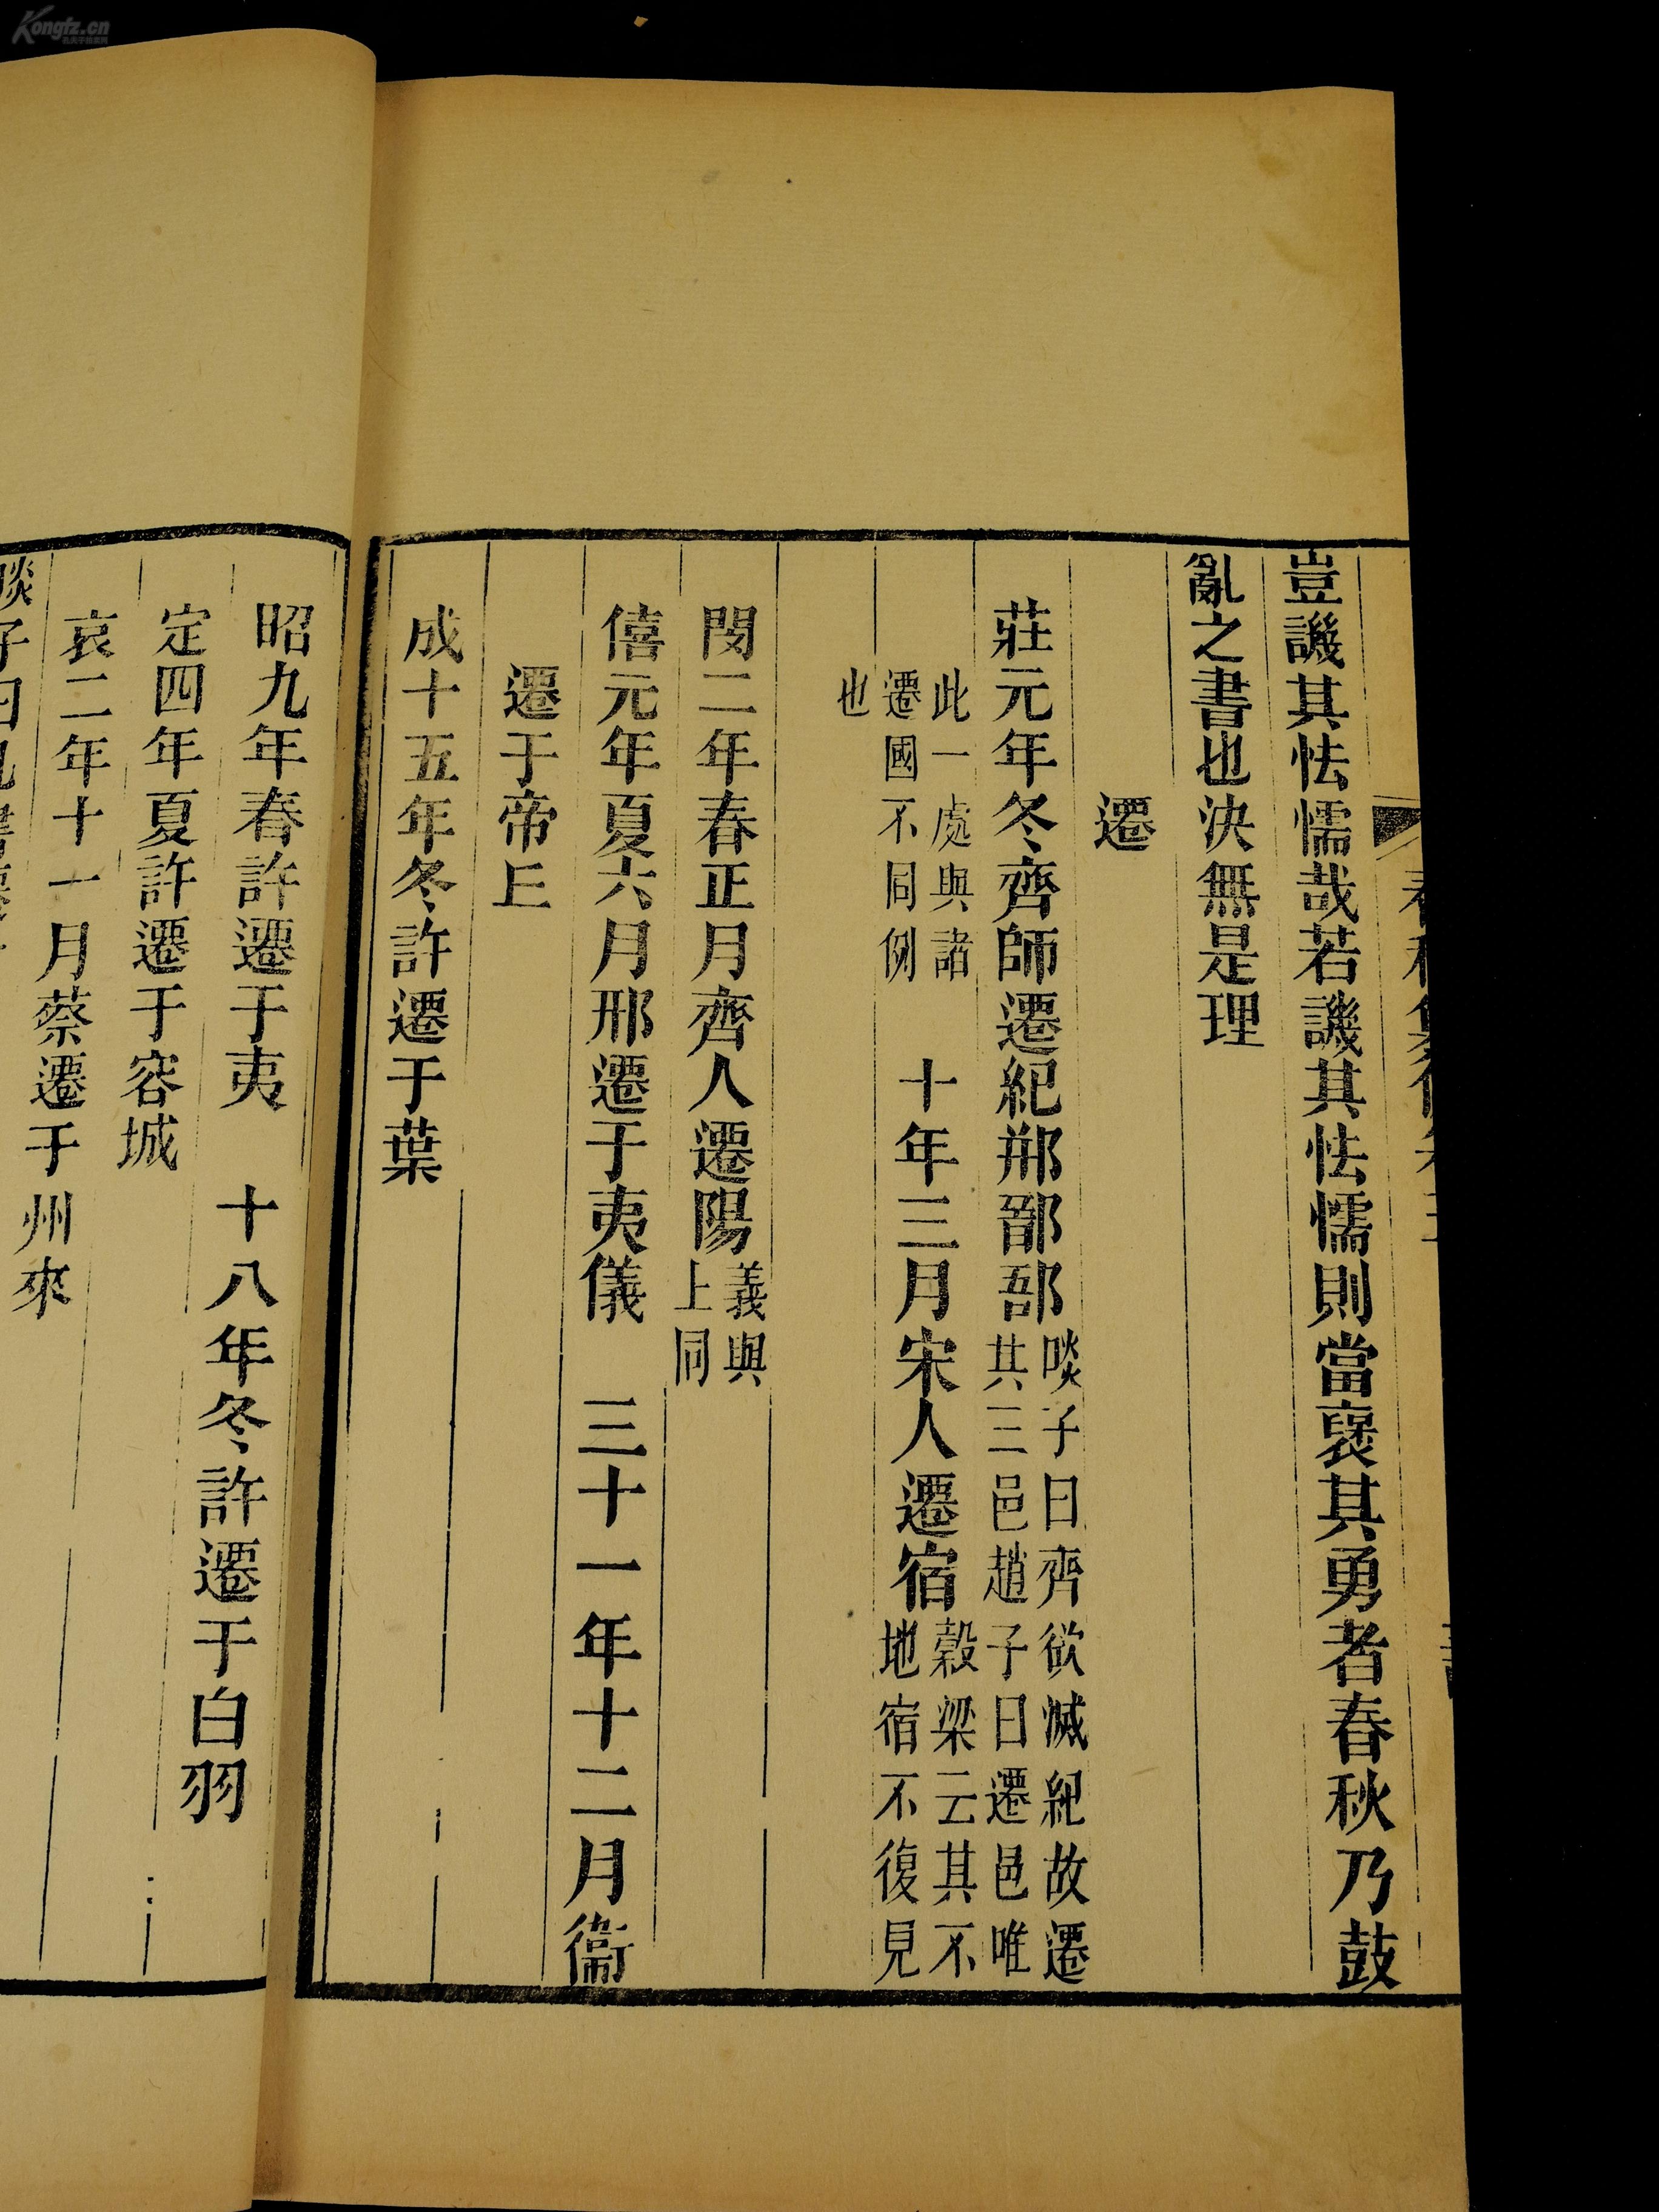 豈譏其怯懦哉若譏其怯懦則當褒其勇者春秋乃鼓
亂之書也決無是理
遷
莊元年冬齊師遷紀郱鄑郚
啖子曰齊欲滅紀故遷
其三邑趙子曰遷邑唯
此一處與諸
遷國不同例
也
十年三月宋人遷宿
穀梁云其不
地宿不復見
閔二年春正月齊人遷陽
義與
上同
僖元年夏六月邢遷于夷儀 三十一年十二月衞
遷于帝丘
成十五年冬許遷于葉
昭九年春許遷于夷 十八年冬許遷于白羽
定四年夏許遷于容城
哀二年十一月蔡遷于州來
啖子曰凡書
Kongfz.cn